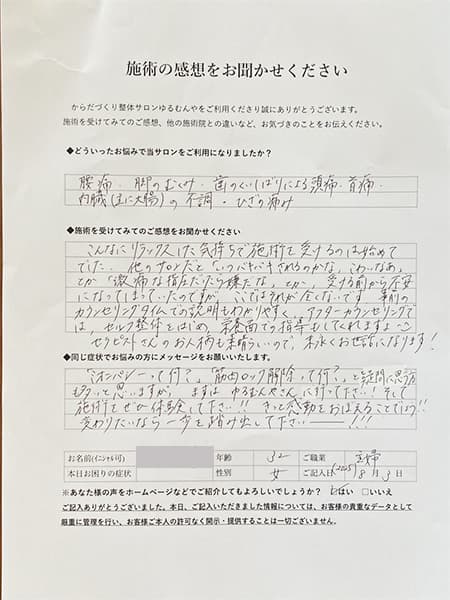 施術の感想をお聞かせください
からだづくり整体サロンゆるむんやをご利用くださり誠にありがとうございます。
施術を受けてみてのご感想、他の施術院との違いなど、お気づきのことをお伝えください。
◆どういったお悩みで当サロンをご利用になりましたか？
腰痛・脚のむくみ・歯のくいしばりによる頭痛・首痛・
内臓(主に大腸)の不調・ひざの痛み
◆施術を受けてみてのご感想をお聞かせください
こんなにリラックスした気持ちで施術を受けるのは始めて
でした。他のサロンだと「いつバキバキされるのかな、こわいなぁ」
とか「激痛な指圧だったら嫌だな」とか、受ける前から不安
になってしまっていたのですが、ここではそれが全くないです。事前の
カウンセリングタイムでの説明もわかりやすく、アフターカウンセリングで
は、セルフ整体をはじめ、栄養面での指導もしてくれますよ
セラピストさんのお人柄も素晴らしいので、末永くお世話になります！
◆同じ症状でお悩みの方にメッセージをお願いいたします。
「ミオンパシーって何？」「筋肉ロック解除って何？」と疑問に思う方
も多いと思いますが、まずは ゆるむんやさんに行って下さい！！そして
施術をぜひ体験して下さい！！きっと感動をおぼえることでしょう！！
変わりたいなら一歩を踏み出して下さいーーー！！！
お名前(ｲﾆｼｬﾙ可) 年齢 32 ご職業 主婦
本日お困りの症状 性別 女 ご記入日 (2025) 8月3日
※あなた様の声をホームページなどでご紹介してもよろしいでしょうか？ ☑はい □いいえ
ご記入ありがとうございました。本日、ご記入いただきました情報については、お客様の貴重なデータとして
厳重に管理を行い、お客様ご本人の許可なく開示・提供することは一切ございません。